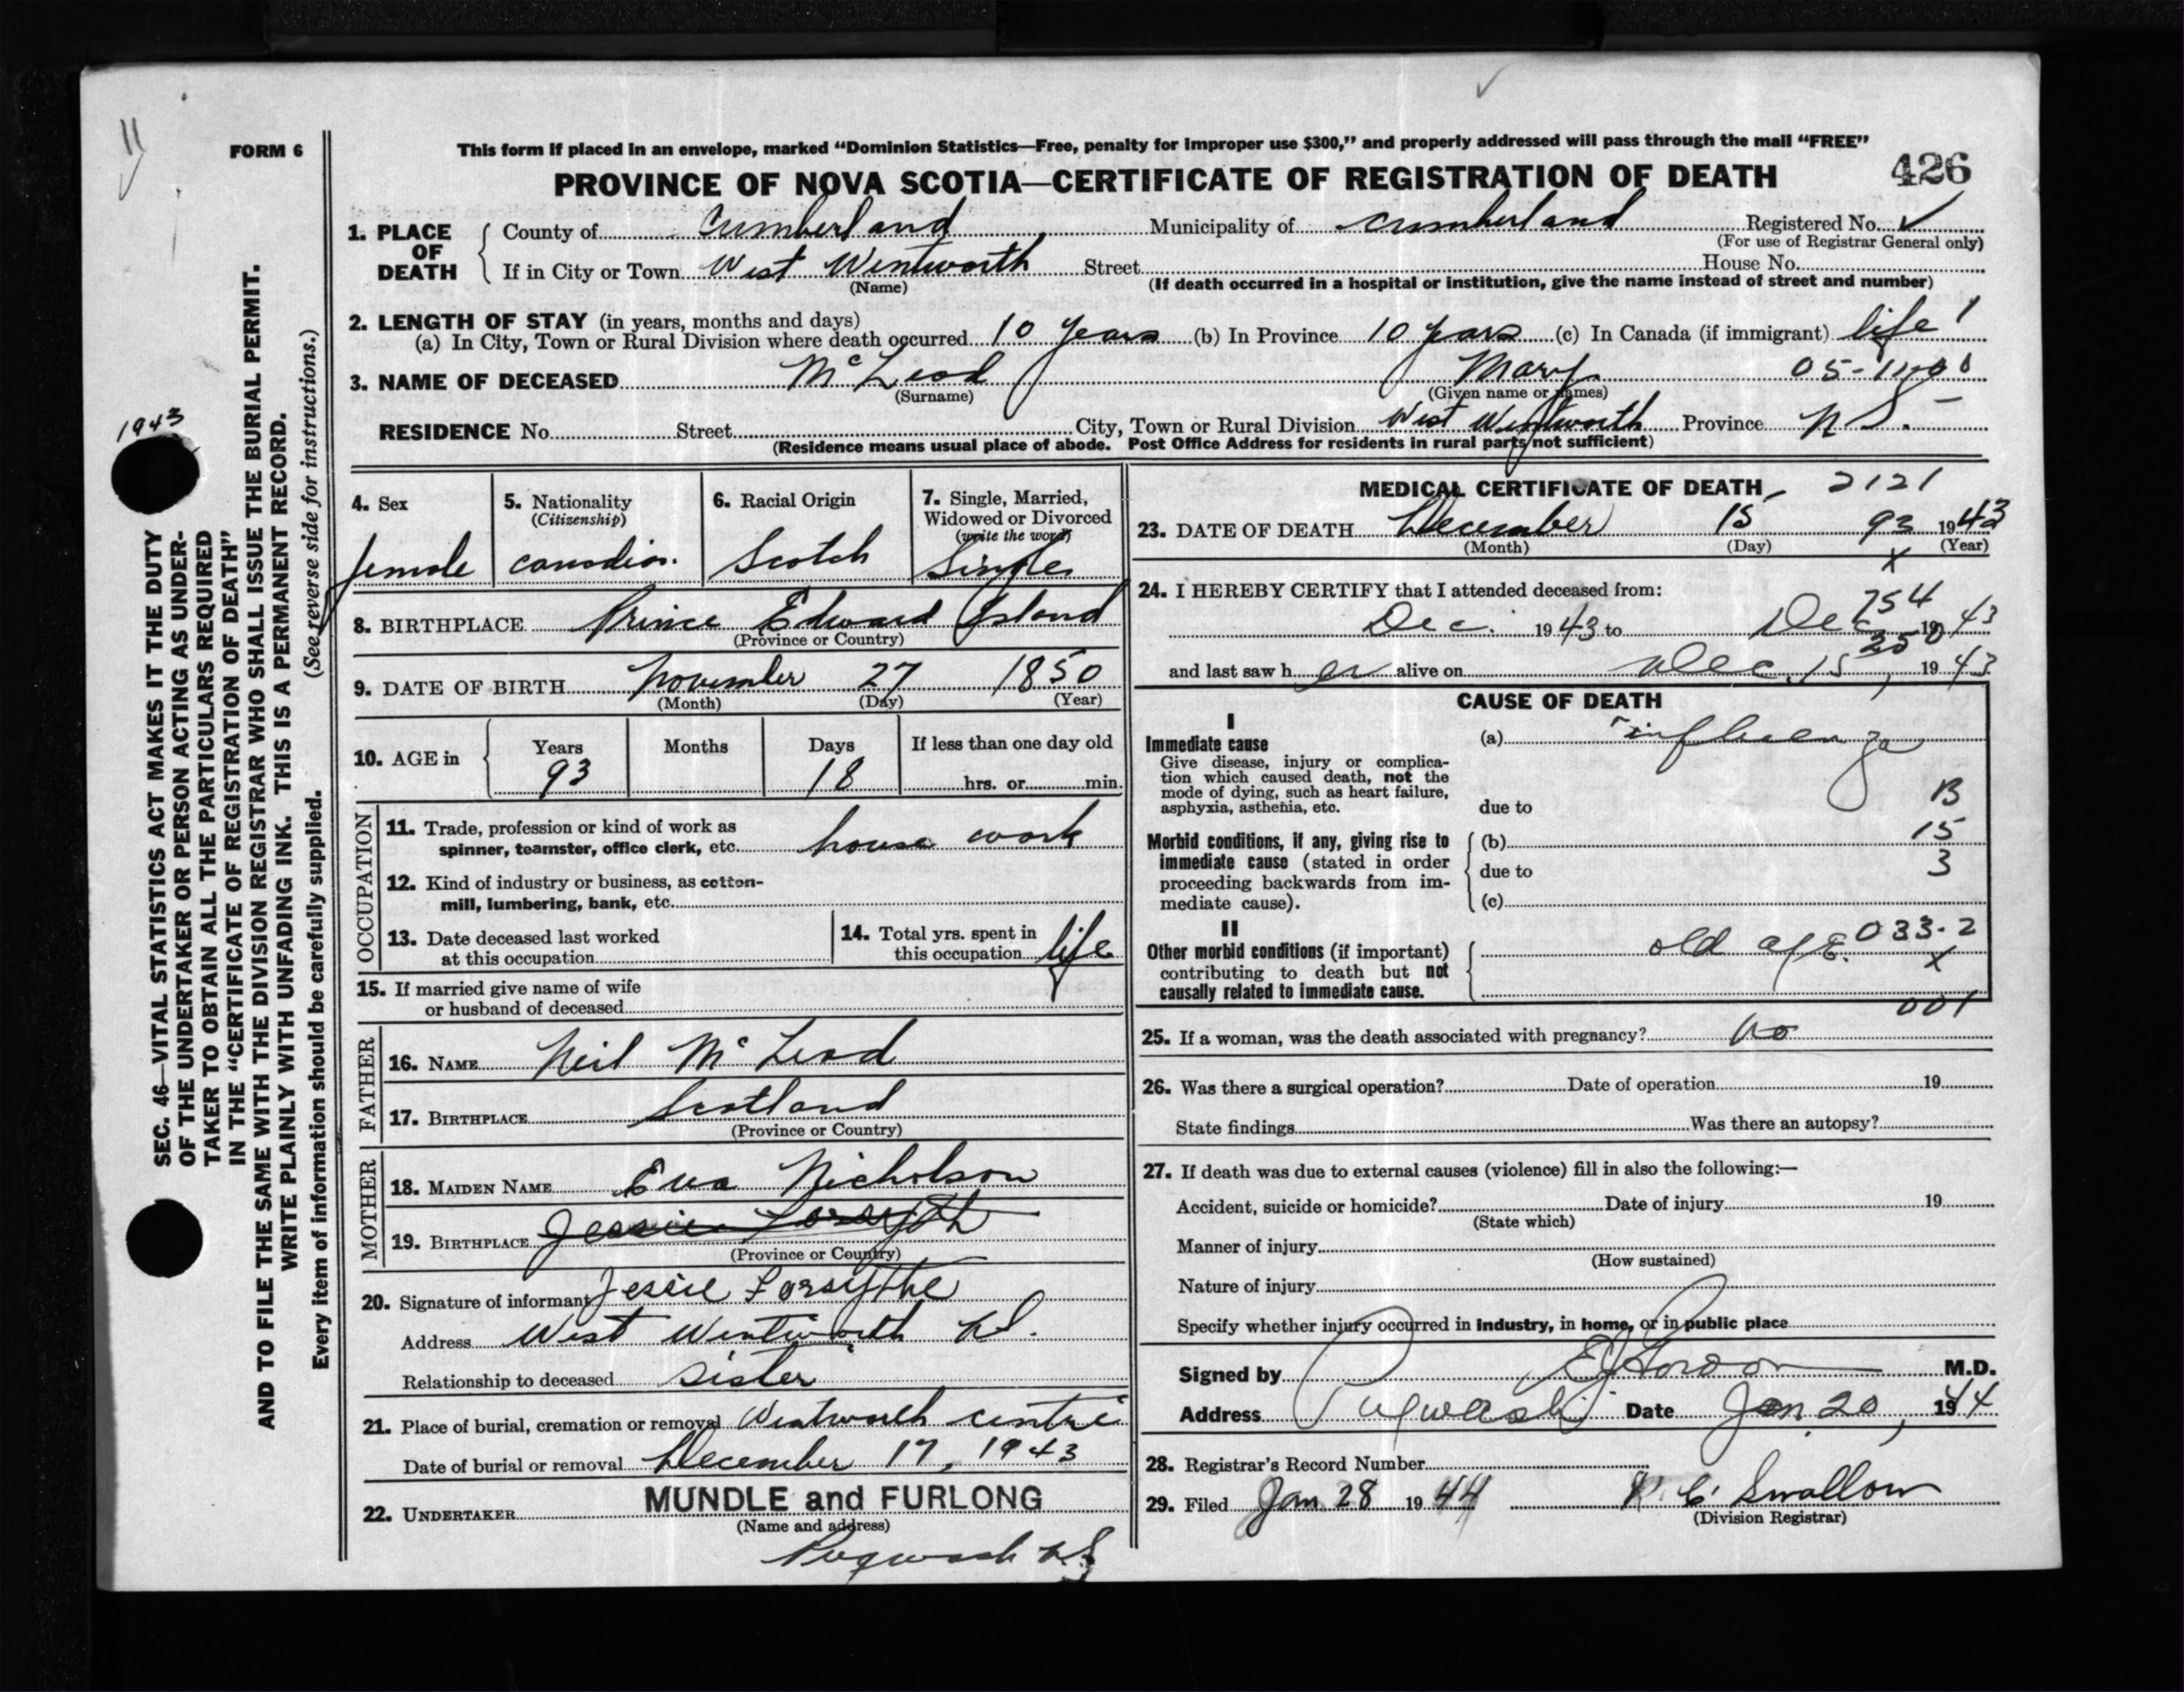 11
FORM 6
This form if placed in an envelope, marked "Dominion Statistics—Free, penalty for improper use $300," and properly addressed will pass through the mail "FREE"
PROVINCE OF NOVA SCOTIA—CERTIFICATE OF REGISTRATION OF DEATH
426
1. PLACE OF DEATH
County of Cumberland Municipality of Cumberland Registered No. ✓
(For use of Registrar General only)
If in City or Town West Wentworth Street House No.
(Name) (If death occurred in a hospital or institution, give the name instead of street and number)
2. LENGTH OF STAY (in years, months and days)
(a) In City, Town or Rural Division where death occurred 10 years (b) In Province 10 years (c) In Canada (if immigrant) life
3. NAME OF DECEASED McLeod Mary 05-1400
(Surname) (Given name or names)
RESIDENCE No. Street City, Town or Rural Division West Wentworth Province N S.
(Residence means usual place of abode. Post Office Address for residents in rural parts not sufficient)
1943
SEC. 46—VITAL STATISTICS ACT MAKES IT THE DUTY
OF THE UNDERTAKER OR PERSON ACTING AS UNDER-
TAKER TO OBTAIN ALL THE PARTICULARS REQUIRED
IN THE "CERTIFICATE OF REGISTRATION OF DEATH"
AND TO FILE THE SAME WITH THE DIVISION REGISTRAR WHO SHALL ISSUE THE BURIAL PERMIT.
WRITE PLAINLY WITH UNFADING INK. THIS IS A PERMANENT RECORD.
Every item of information should be carefully supplied. (See reverse side for instructions.)
4. Sex
female
5. Nationality
(Citizenship)
canadian.
6. Racial Origin
Scotch
7. Single, Married,
Widowed or Divorced
(write the word)
Single
8. BIRTHPLACE Prince Edward Island
(Province or Country)
9. DATE OF BIRTH November 27 1850
(Month) (Day) (Year)
10. AGE in
Years Months Days If less than one day old
93 18 hrs. or min.
OCCUPATION
11. Trade, profession or kind of work as
spinner, teamster, office clerk, etc. house work
12. Kind of industry or business, as cotton-
mill, lumbering, bank, etc.
13. Date deceased last worked
at this occupation
14. Total yrs. spent in
this occupation life
15. If married give name of wife
or husband of deceased
FATHER
16. NAME Neil McLeod
17. BIRTHPLACE Scotland
(Province or Country)
MOTHER
18. MAIDEN NAME Eva Nicholson
19. BIRTHPLACE Jessie Forsyth
(Province or Country)
20. Signature of informant Jessie Forsythe
Address West Wentworth N.S.
Relationship to deceased sister
21. Place of burial, cremation or removal Wentworth centre
Date of burial or removal December 17, 1943
22. UNDERTAKER MUNDLE and FURLONG
(Name and address)
Pugwash N S
MEDICAL CERTIFICATE OF DEATH 2121
23. DATE OF DEATH December 15 93 1943
(Month) (Day) (Year)
x
24. I HEREBY CERTIFY that I attended deceased from:
754
Dec. 1943 to Dec 1943
350
and last saw her alive on Dec. 15, 1943
CAUSE OF DEATH
I
Immediate cause
Give disease, injury or complica-
tion which caused death, not the
mode of dying, such as heart failure,
asphyxia, asthenia, etc.
(a) influenza
due to
B
Morbid conditions, if any, giving rise to
immediate cause (stated in order
proceeding backwards from im-
mediate cause).
(b) 15
due to 3
(c)
II
Other morbid conditions (if important)
contributing to death but not
causally related to immediate cause.
old age. 033-2
x
001
25. If a woman, was the death associated with pregnancy? no
26. Was there a surgical operation? Date of operation 19
State findings Was there an autopsy?
27. If death was due to external causes (violence) fill in also the following:—
Accident, suicide or homicide? Date of injury 19
(State which)
Manner of injury
(How sustained)
Nature of injury
Specify whether injury occurred in industry, in home, or in public place
Signed by E J Gordon M.D.
Address Pugwash Date Jan. 20, 1944
28. Registrar's Record Number
29. Filed Jan 28 1944 C. Swallow
(Division Registrar)